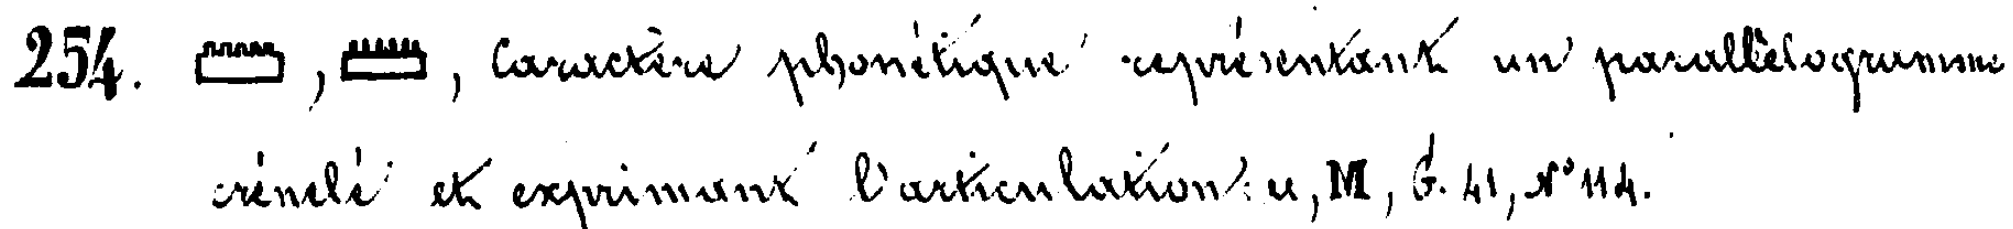 254. 𓏠, 𓏠, Caractère phonétique représentant un parallélogramme
crénelé et exprimant l'articulation ⲙ, M, G. 41, N° 114.